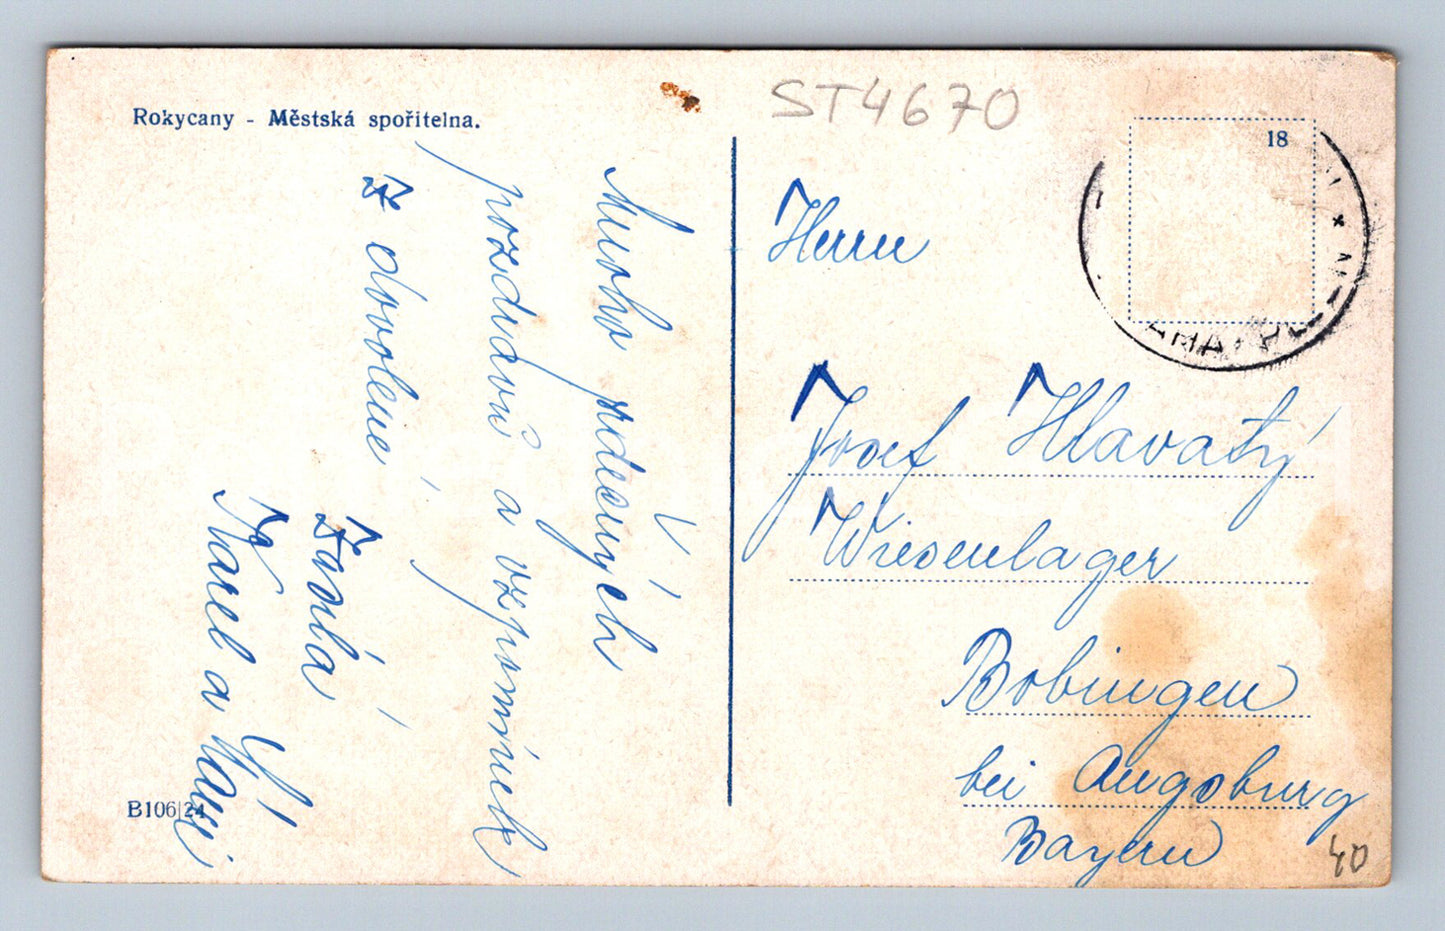 Rokycany - Městská spořitelna.
ST4670
18
Mnoho srdečných
pozdravů a vzpomínek
z dovolené,
Karel a
B106|24
Herrn
Josef Hlavatý
Wiesenlager
Bobingen
bei Augsburg
Bayern
40